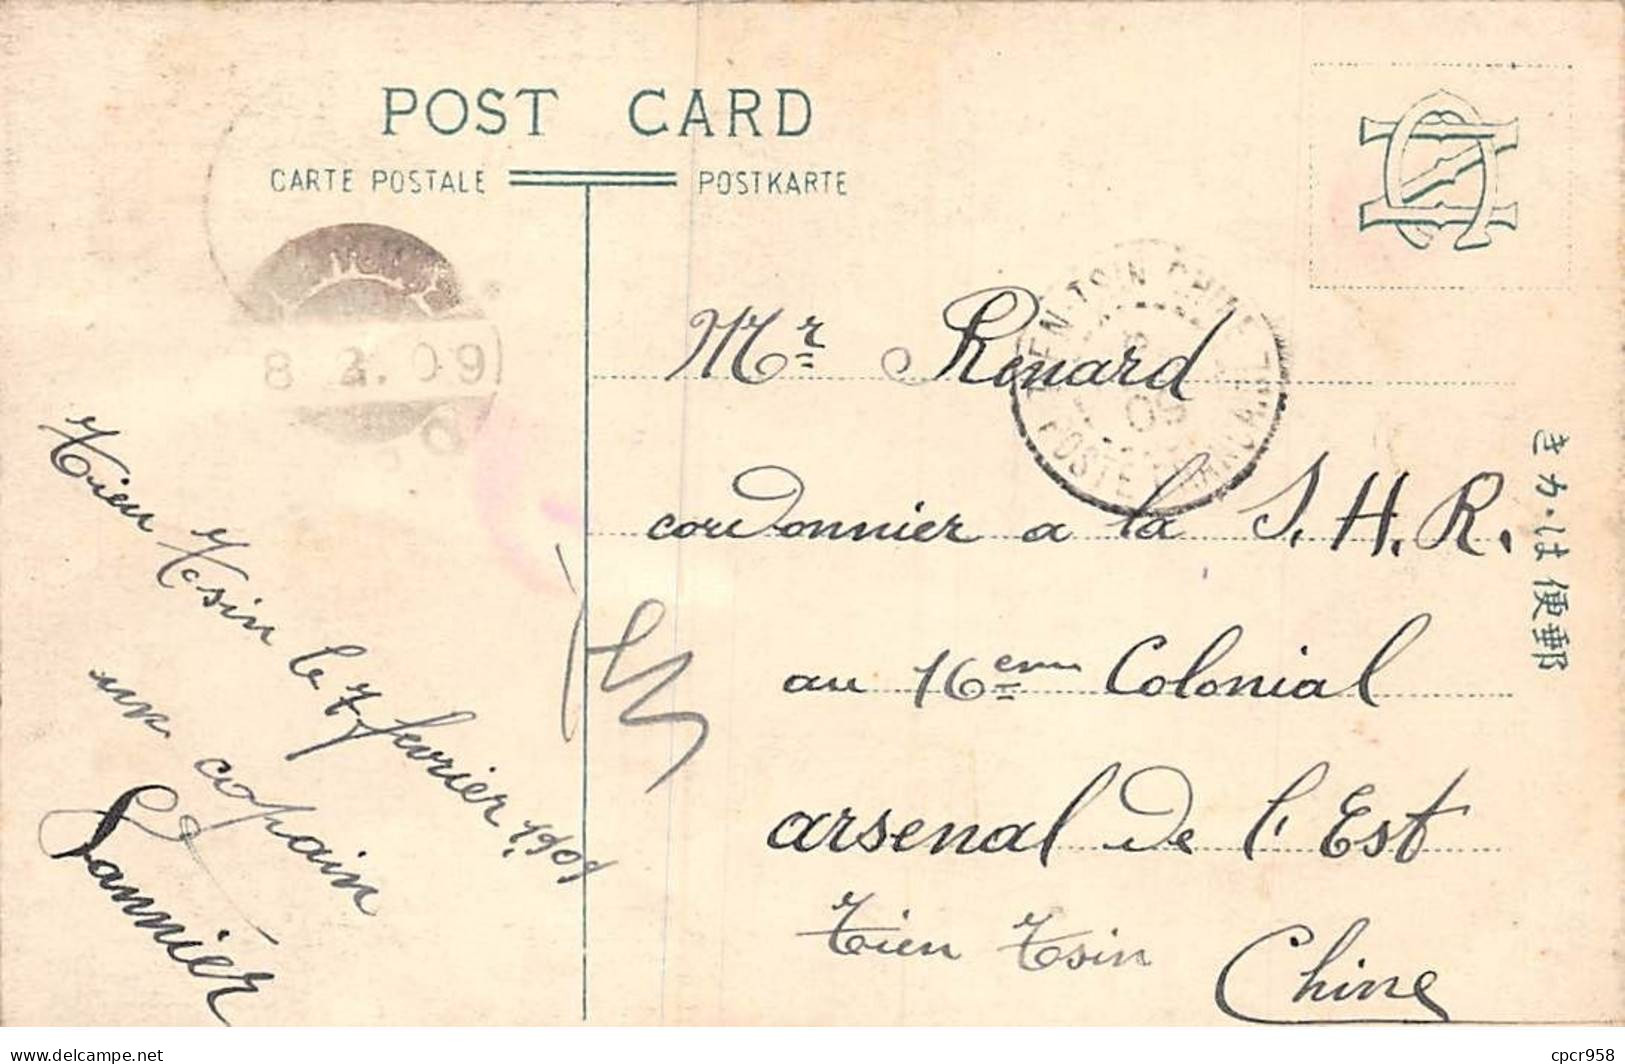 POST CARD
CARTE POSTALE
POSTKARTE
8 2. 09
TIEN-TSIN CHINE
09
POSTE FRANÇAISE
Mr Renard
cordonnier a la S. H. R.
au 16eme Colonial
arsenal de l'Est
Tien Tsin
Chine
Tien Tsin le 7 fevrier 1909
un copain
Lannier
きかは便郵
cpcr958